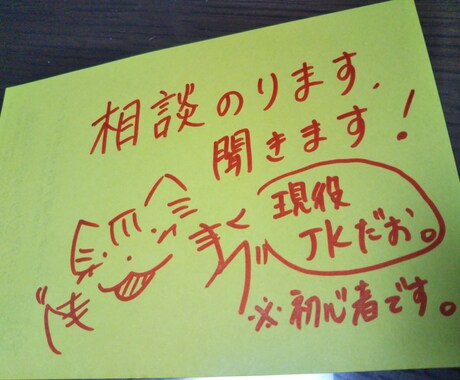 相談のります、
聞きます!
現役
JKだお。
※初心者です。